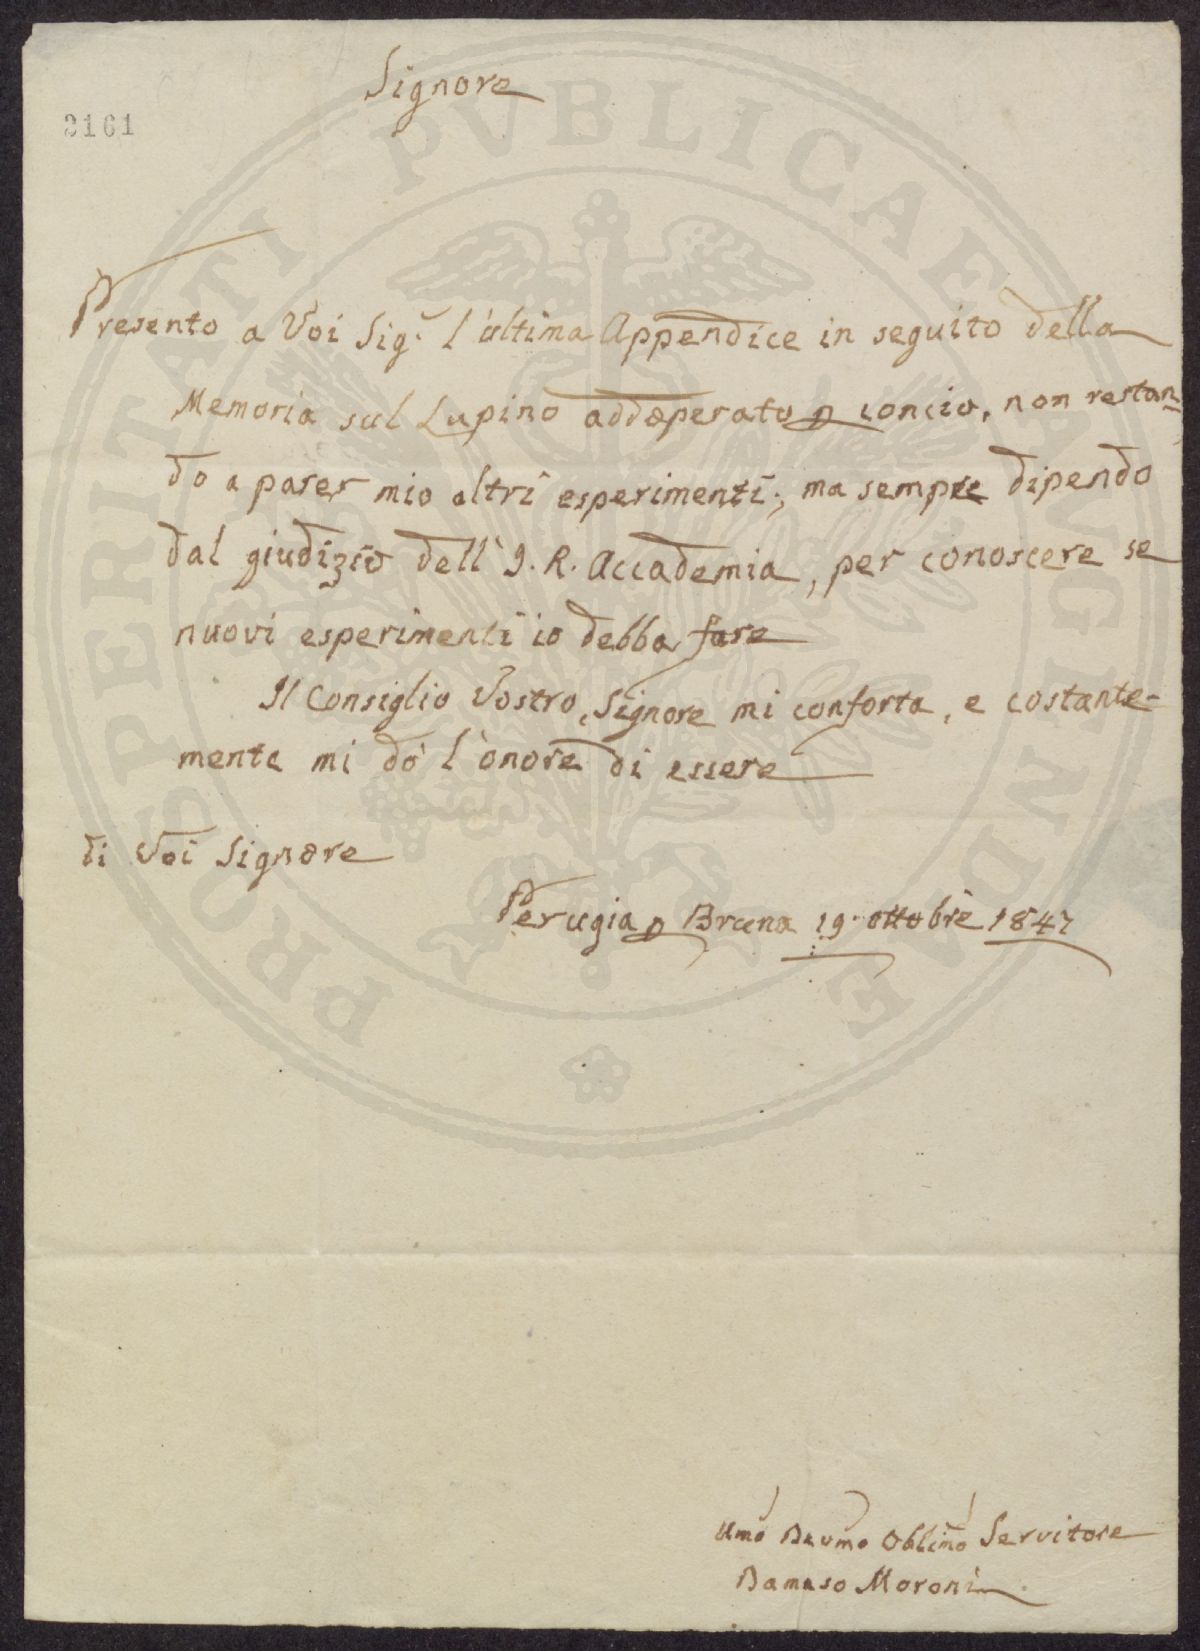 Signore
2161
Presento a Voi Sig.r l'ultima Appendice in seguito della
Memoria sul Lupino addoperato p concio, non restan=
do a parer mio altri esperimenti; ma sempre dipendo
dal giudizio dell'I. R. Accademia, per conoscere se
nuovi esperimenti io debba fare
Il Consiglio Vostro, Signore mi conforta, e costante=
mente mi dò l'onore di essere
di Voi Signore
Perugia p Bruna 19. ottobre 1847
Umo Devmo Oblimo Servitore
Damaso Moroni
PROSPERITATI PVBLICAE AVGENDAE